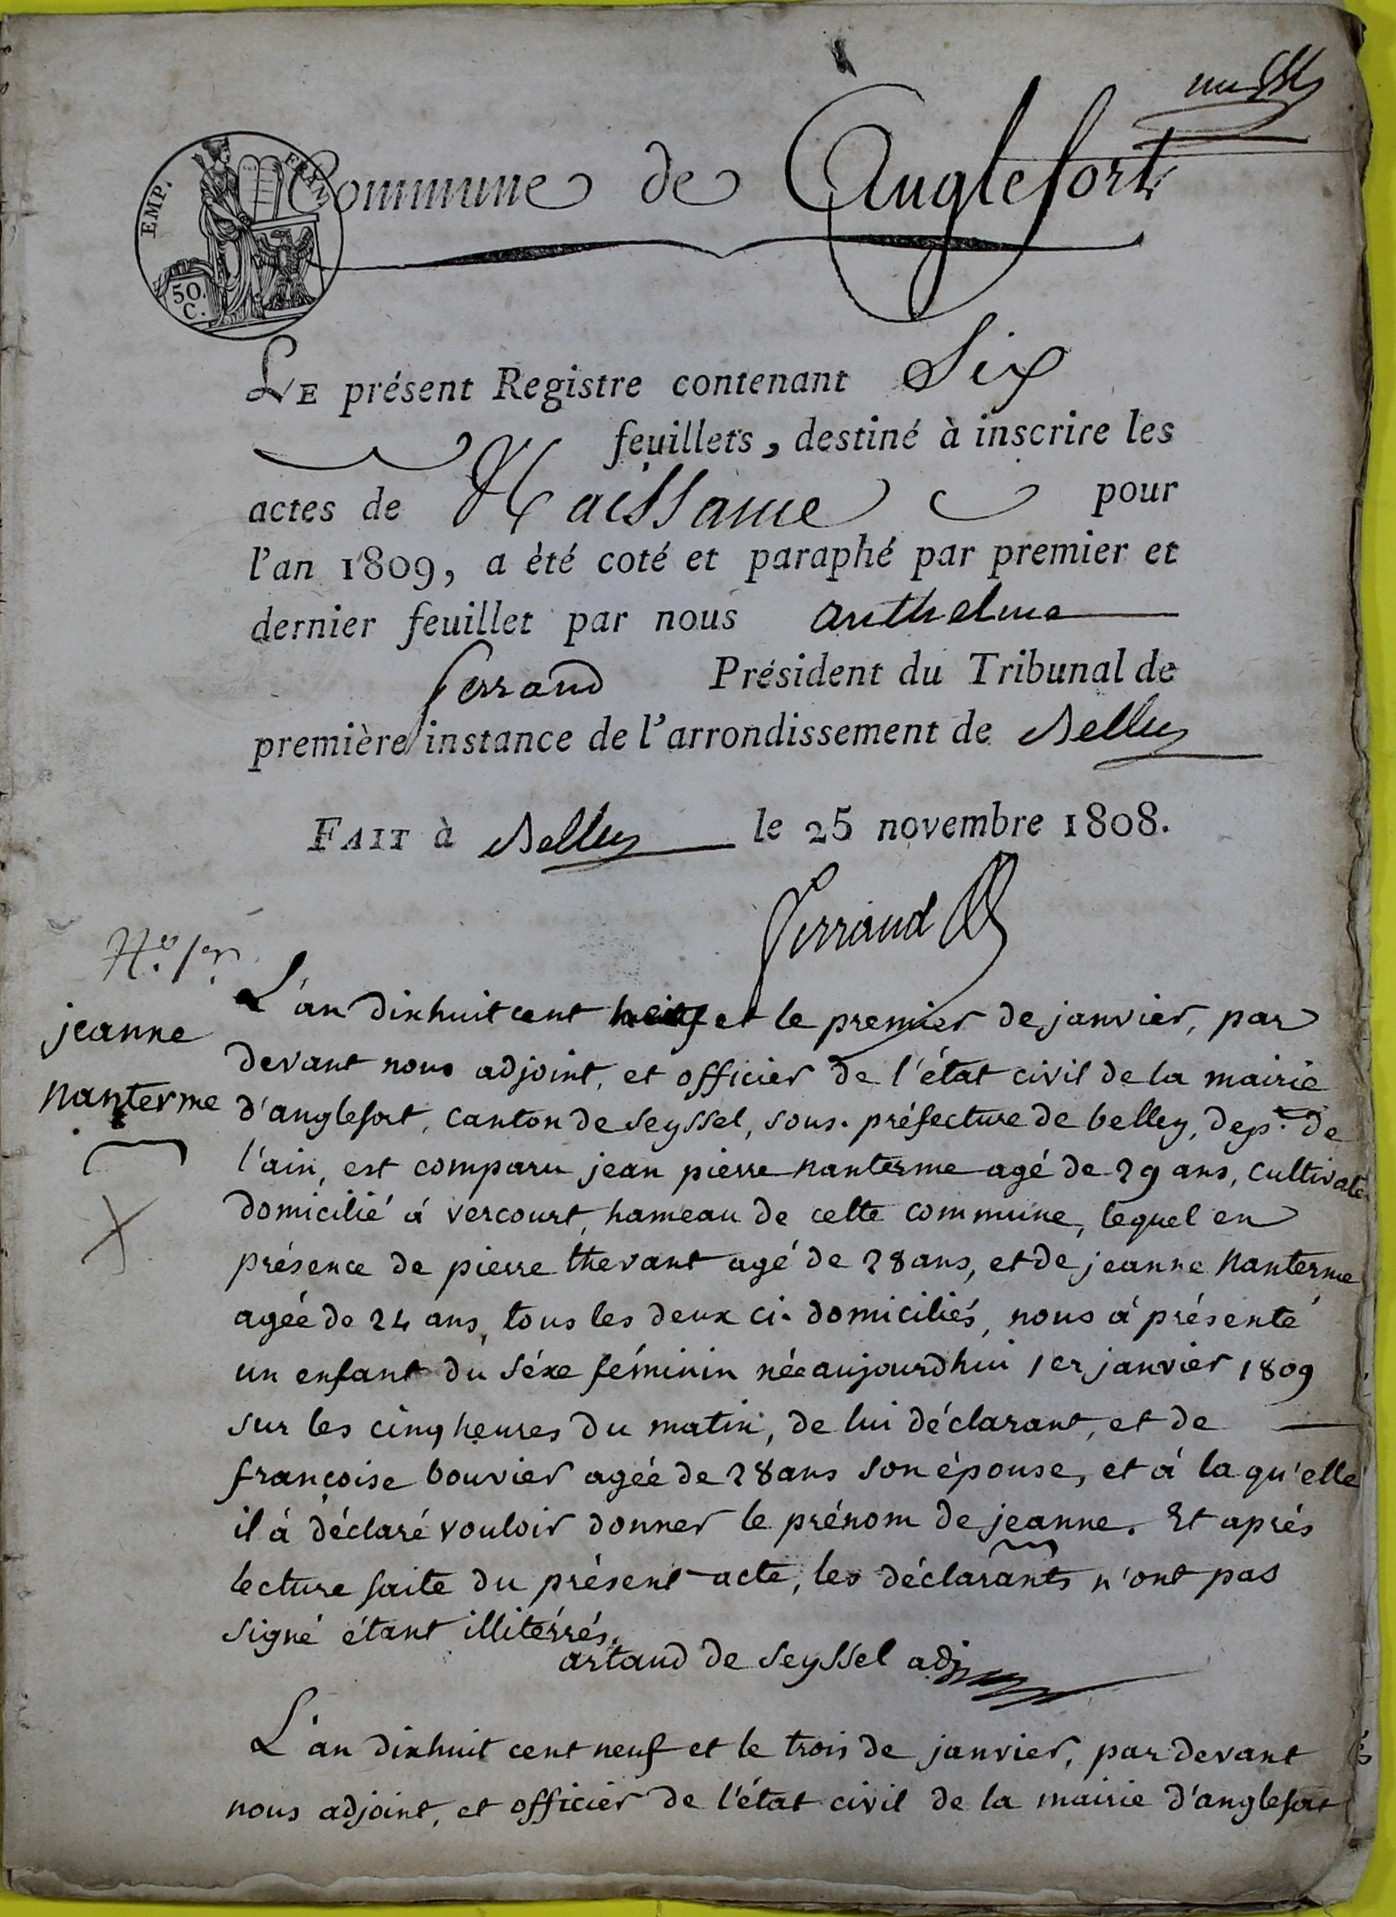 EMP. FRAN.
50. C.
Commune de Anglefort
LE présent Registre contenant Six
feuillets, destiné à inscrire les
actes de Naissance pour
l'an 1809, a èté coté et paraphé par premier et
dernier feuillet par nous anthelme
ferrand Président du Tribunal de
première instance de l'arrondissement de Belley
FAIT à Belley le 25 novembre 1808.
ferrand
N.o 1er
jeanne
nanterme
L'an dixhuit cent neuf et le premier de janvier, par
devant nous adjoint, et officier de l'état civil de la mairie
d'anglefort, canton de seyssel, sous-préfecture de belley, dept. de
l'ain, est comparu jean pierre nanterme agé de 29 ans, cultivate
domicilié à vercourt, hameau de cette commune, lequel en
présence de pierre thevant agé de 28 ans, et de jeanne nanterme
agée de 24 ans, tous les deux ci-domiciliés, nous à présenté
un enfant du séxe féminin née aujourdhui 1er janvier 1809
sur les cinq heures du matin, de lui déclarant, et de
françoise bouvier agée de 28 ans son épouse, et à laqu'elle
il à déclaré vouloir donner le prénom de jeanne. Et aprés
lecture faite du présent acte, les déclarants n'ont pas
signé étant illitérrés.
artaud de seyssel adj
L'an dixhuit cent neuf et le trois de janvier, par devant
nous adjoint, et officier de l'état civil de la mairie d'anglefort